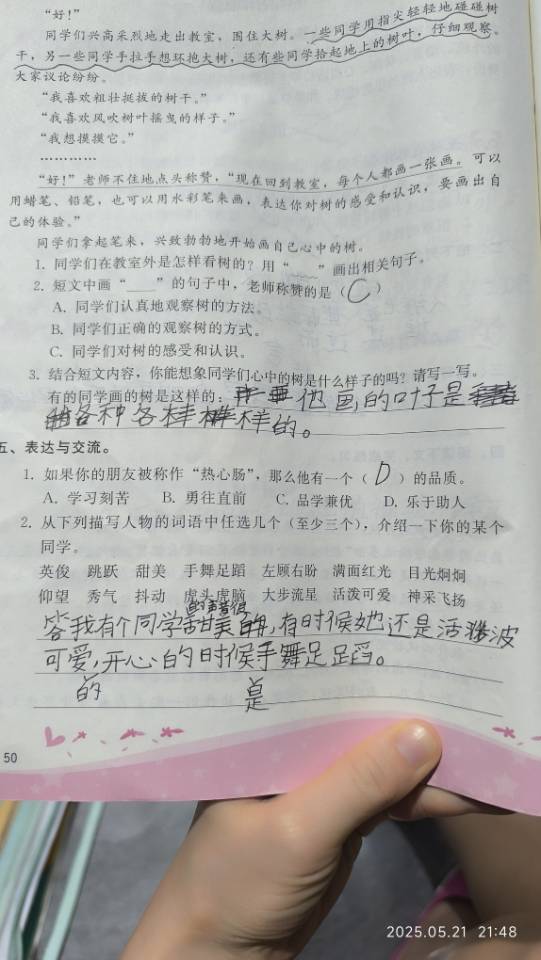 “好！”
同学们兴高采烈地走出教室，围住大树。一些同学用指尖轻轻地碰碰树
干，另一些同学手拉手想环抱大树，还有些同学拾起地上的树叶，仔细观察。
大家议论纷纷。
“我喜欢粗壮挺拔的树干。”
“我喜欢风吹树叶摇曳的样子。”
“我想摸摸它。”
…………
“好！”老师不住地点头称赞，“现在回到教室，每个人都画一张画。可以
用蜡笔、铅笔，也可以用水彩笔来画，表达你对树的感受和认识，要画出自
己的体验。”
同学们拿起笔来，兴致勃勃地开始画自己心中的树。
1. 同学们在教室外是怎样看树的？用“ ”画出相关句子。
2. 短文中画“____”的句子中，老师称赞的是（C）
A. 同学们认真地观察树的方法。
B. 同学们正确的观察树的方式。
C. 同学们对树的感受和认识。
3. 结合短文内容，你能想象同学们心中的树是什么样子的吗？请写一写。
有的同学画的树是这样的：他画的叶子是
各种各样的。
五、表达与交流。
1. 如果你的朋友被称作“热心肠”，那么他有一个（D）的品质。
A. 学习刻苦 B. 勇往直前 C. 品学兼优 D. 乐于助人
2. 从下列描写人物的词语中任选几个（至少三个），介绍一下你的某个
同学。
英俊 跳跃 甜美 手舞足蹈 左顾右盼 满面红光 目光炯炯
仰望 秀气 抖动 虎头虎脑 大步流星 活泼可爱 神采飞扬
的声音很
答我有个同学甜美，有时候她还是活波
可爱，开心的时候手舞足蹈。
的 是
50
2025.05.21 21:48